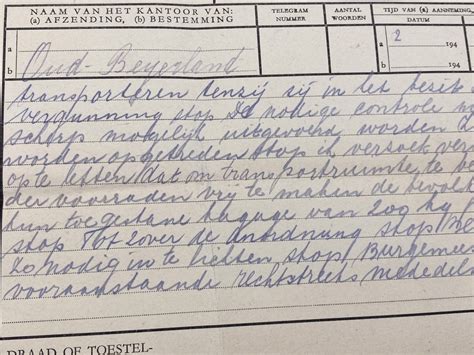 NAAM VAN HET KANTOOR VAN:
(a) AFZENDING, (b) BESTEMMING
TELEGRAM
NUMMER
AANTAL
WOORDEN
TIJD VAN (a) AANNEMING,
DATUM
a
2
194
b Oud-Beyerland
194
transporteren tenzij zij in het bezit
vergunning stop De nodige controle
scherp mogelijk uitgevoerd worden
worden opgetreden stop ik verzoek
op te letten dat om transportruimte te
voorraden vrij te maken de
hun toegestane bagage van 200 kg
stop over de anordnung stop
Zo nodig in te lichten stop Burgemee
vooraanstaande rechtstreeks mededel
DRAAD OF TOESTEL-